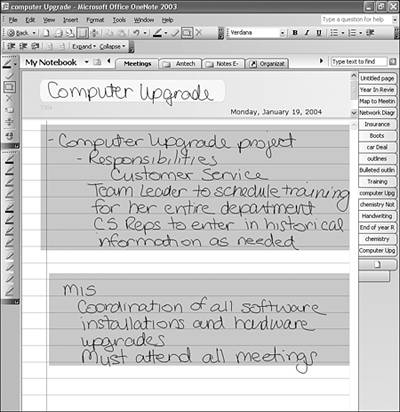 computer Upgrade - Microsoft Office OneNote 2003
File Edit View Insert Format Tools Window Help
Type a question for help
Back
Verdana
B I U
Expand Collapse
My Notebook
Meetings
Antech
Notes E-
Organizat
Type text to find
Computer Upgrade
Title
Monday, January 19, 2004
- Computer Upgrade project
- Responsibilities
Customer Service
Team Leader to schedule training
for her entire department
CS Reps to enter in historical
nformation as needed
MIS
Coordination of all software
installations and hardware
upgrades
Must attend all meetings
Untitled page
Year In Revie
Map to Meetin
Network Diagr
Insurance
Boots
car Deal
outlines
Bulleted outlin
Training
computer Upg
chemistry Not
Handwriting
End of year R
chemistry
Computer Upg